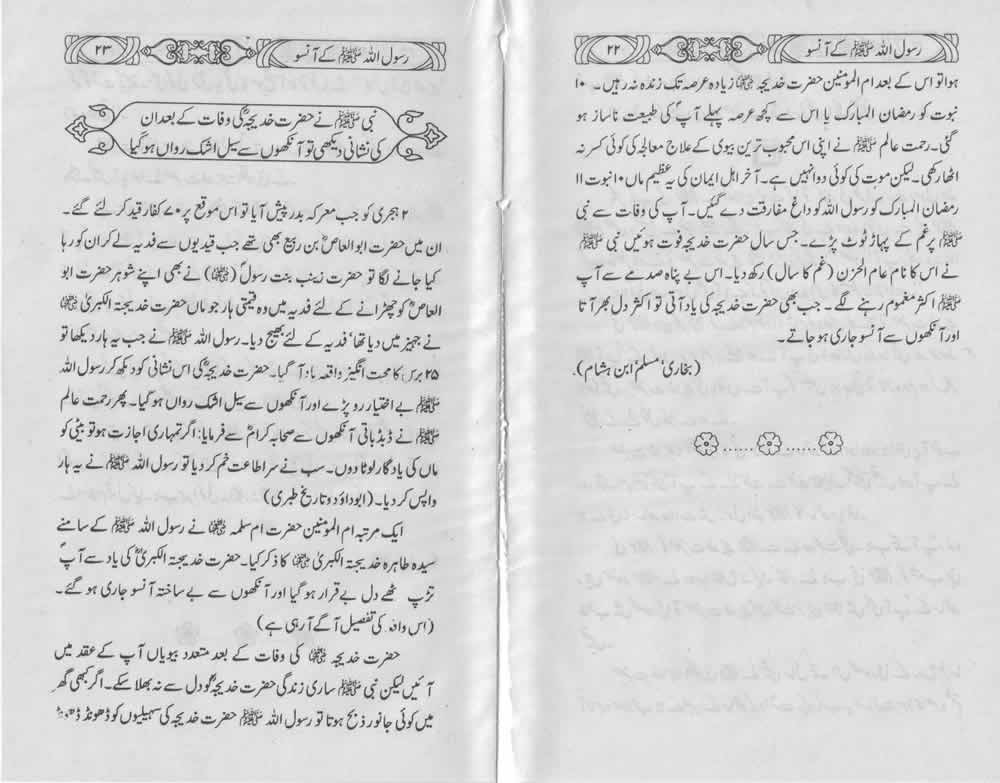 رسول اللہ ﷺ کے آنسو
۲۲
ہوا تو اس کے بعد ام المؤمنین حضرت خدیجہ ؓ زیادہ عرصہ تک زندہ نہ رہیں۔ ۱۰
نبوت کو رمضان المبارک یا اس سے کچھ عرصہ پہلے آپ کی طبیعت ناساز ہو
گئی۔ رحمت عالم ﷺ نے اپنی اس محبوب ترین بیوی کے علاج معالجہ کی کوئی کسر نہ
اٹھا رکھی۔ لیکن موت کی کوئی دوا نہیں ہے۔ آخر اہل ایمان کی یہ عظیم ماں ۱۰ نبوت ۱۱
رمضان المبارک کو رسول اللہ کو داغ مفارقت دے گئیں۔ آپ کی وفات سے نبی
ﷺ پر غم کے پہاڑ ٹوٹ پڑے۔ جس سال حضرت خدیجہ فوت ہوئیں نبی ﷺ
نے اس کا نام عام الحزن (غم کا سال) رکھ دیا۔ اس بے پناہ صدمے سے آپ
ﷺ اکثر مغموم رہنے لگے۔ جب بھی حضرت خدیجہ کی یاد آتی تو اکثر دل بھر آتا
اور آنکھوں سے آنسو جاری ہو جاتے۔
(بخاری' مسلم' ابن ہشام)۔
رسول اللہ ﷺ کے آنسو
۲۳
نبی ﷺ نے حضرت خدیجہؓ کی وفات کے بعد ان
کی نشانی دیکھی تو آنکھوں سے سیل اشک رواں ہو گیا
۲ ہجری کو جب معرکہ بدر پیش آیا تو اس موقع پر ۷۰ کفار قید کر لئے گئے۔
ان میں حضرت ابو العاصؓ بن ربیع بھی تھے جب قیدیوں سے فدیہ لے کر ان کو رہا
کیا جانے لگا تو حضرت زینب بنت رسولؐ (ؓ) نے بھی اپنے شوہر حضرت ابو
العاصؓ کو چھڑانے کے لئے فدیہ میں وہ قیمتی ہار جو ماں حضرت خدیجتہ الکبریٰ ؓ
نے جہیز میں دیا تھا' فدیہ کے لئے بھیج دیا۔ رسول اللہ ﷺ نے جب یہ ہار دیکھا تو
۲۵ برس کا محبت انگیز واقعہ یاد آ گیا۔ حضرت خدیجہؓ کی اس نشانی کو دیکھ کر رسول اللہ
ﷺ بے اختیار رو پڑے اور آنکھوں سے سیل اشک رواں ہو گیا۔ پھر رحمت عالم
ﷺ نے ڈبڈباتی آنکھوں سے صحابہ کرامؓ سے فرمایا: اگر تمہاری اجازت ہو تو بیٹی کو
ماں کی یادگار لوٹا دوں۔ سب نے سر اطاعت خم کر دیا تو رسول اللہ ﷺ نے یہ ہار
واپس کر دیا۔ (ابوداؤد و تاریخ طبری)
ایک مرتبہ ام المؤمنین حضرت ام سلمہ ؓ نے رسول اللہ ﷺ کے سامنے
سیدہ طاہرہ خدیجتہ الکبریٰ ؓ کا ذکر کیا۔ حضرت خدیجتہ الکبریؓ کی یاد سے آپؐ
تڑپ اٹھے دل بے قرار ہو گیا اور آنکھوں سے بے ساختہ آنسو جاری ہو گئے۔
(اس واقعہ کی تفصیل آگے آ رہی ہے)
حضرت خدیجہ ؓ کی وفات کے بعد متعدد بیویاں آپ کے عقد میں
آئیں لیکن نبی ﷺ ساری زندگی حضرت خدیجہؓ کو دل سے نہ بھلا سکے۔ اگر کبھی گھر
میں کوئی جانور ذبح ہوتا تو رسول اللہ ﷺ حضرت خدیجہ کی سہیلیوں کو ڈھونڈ ڈھونڈ